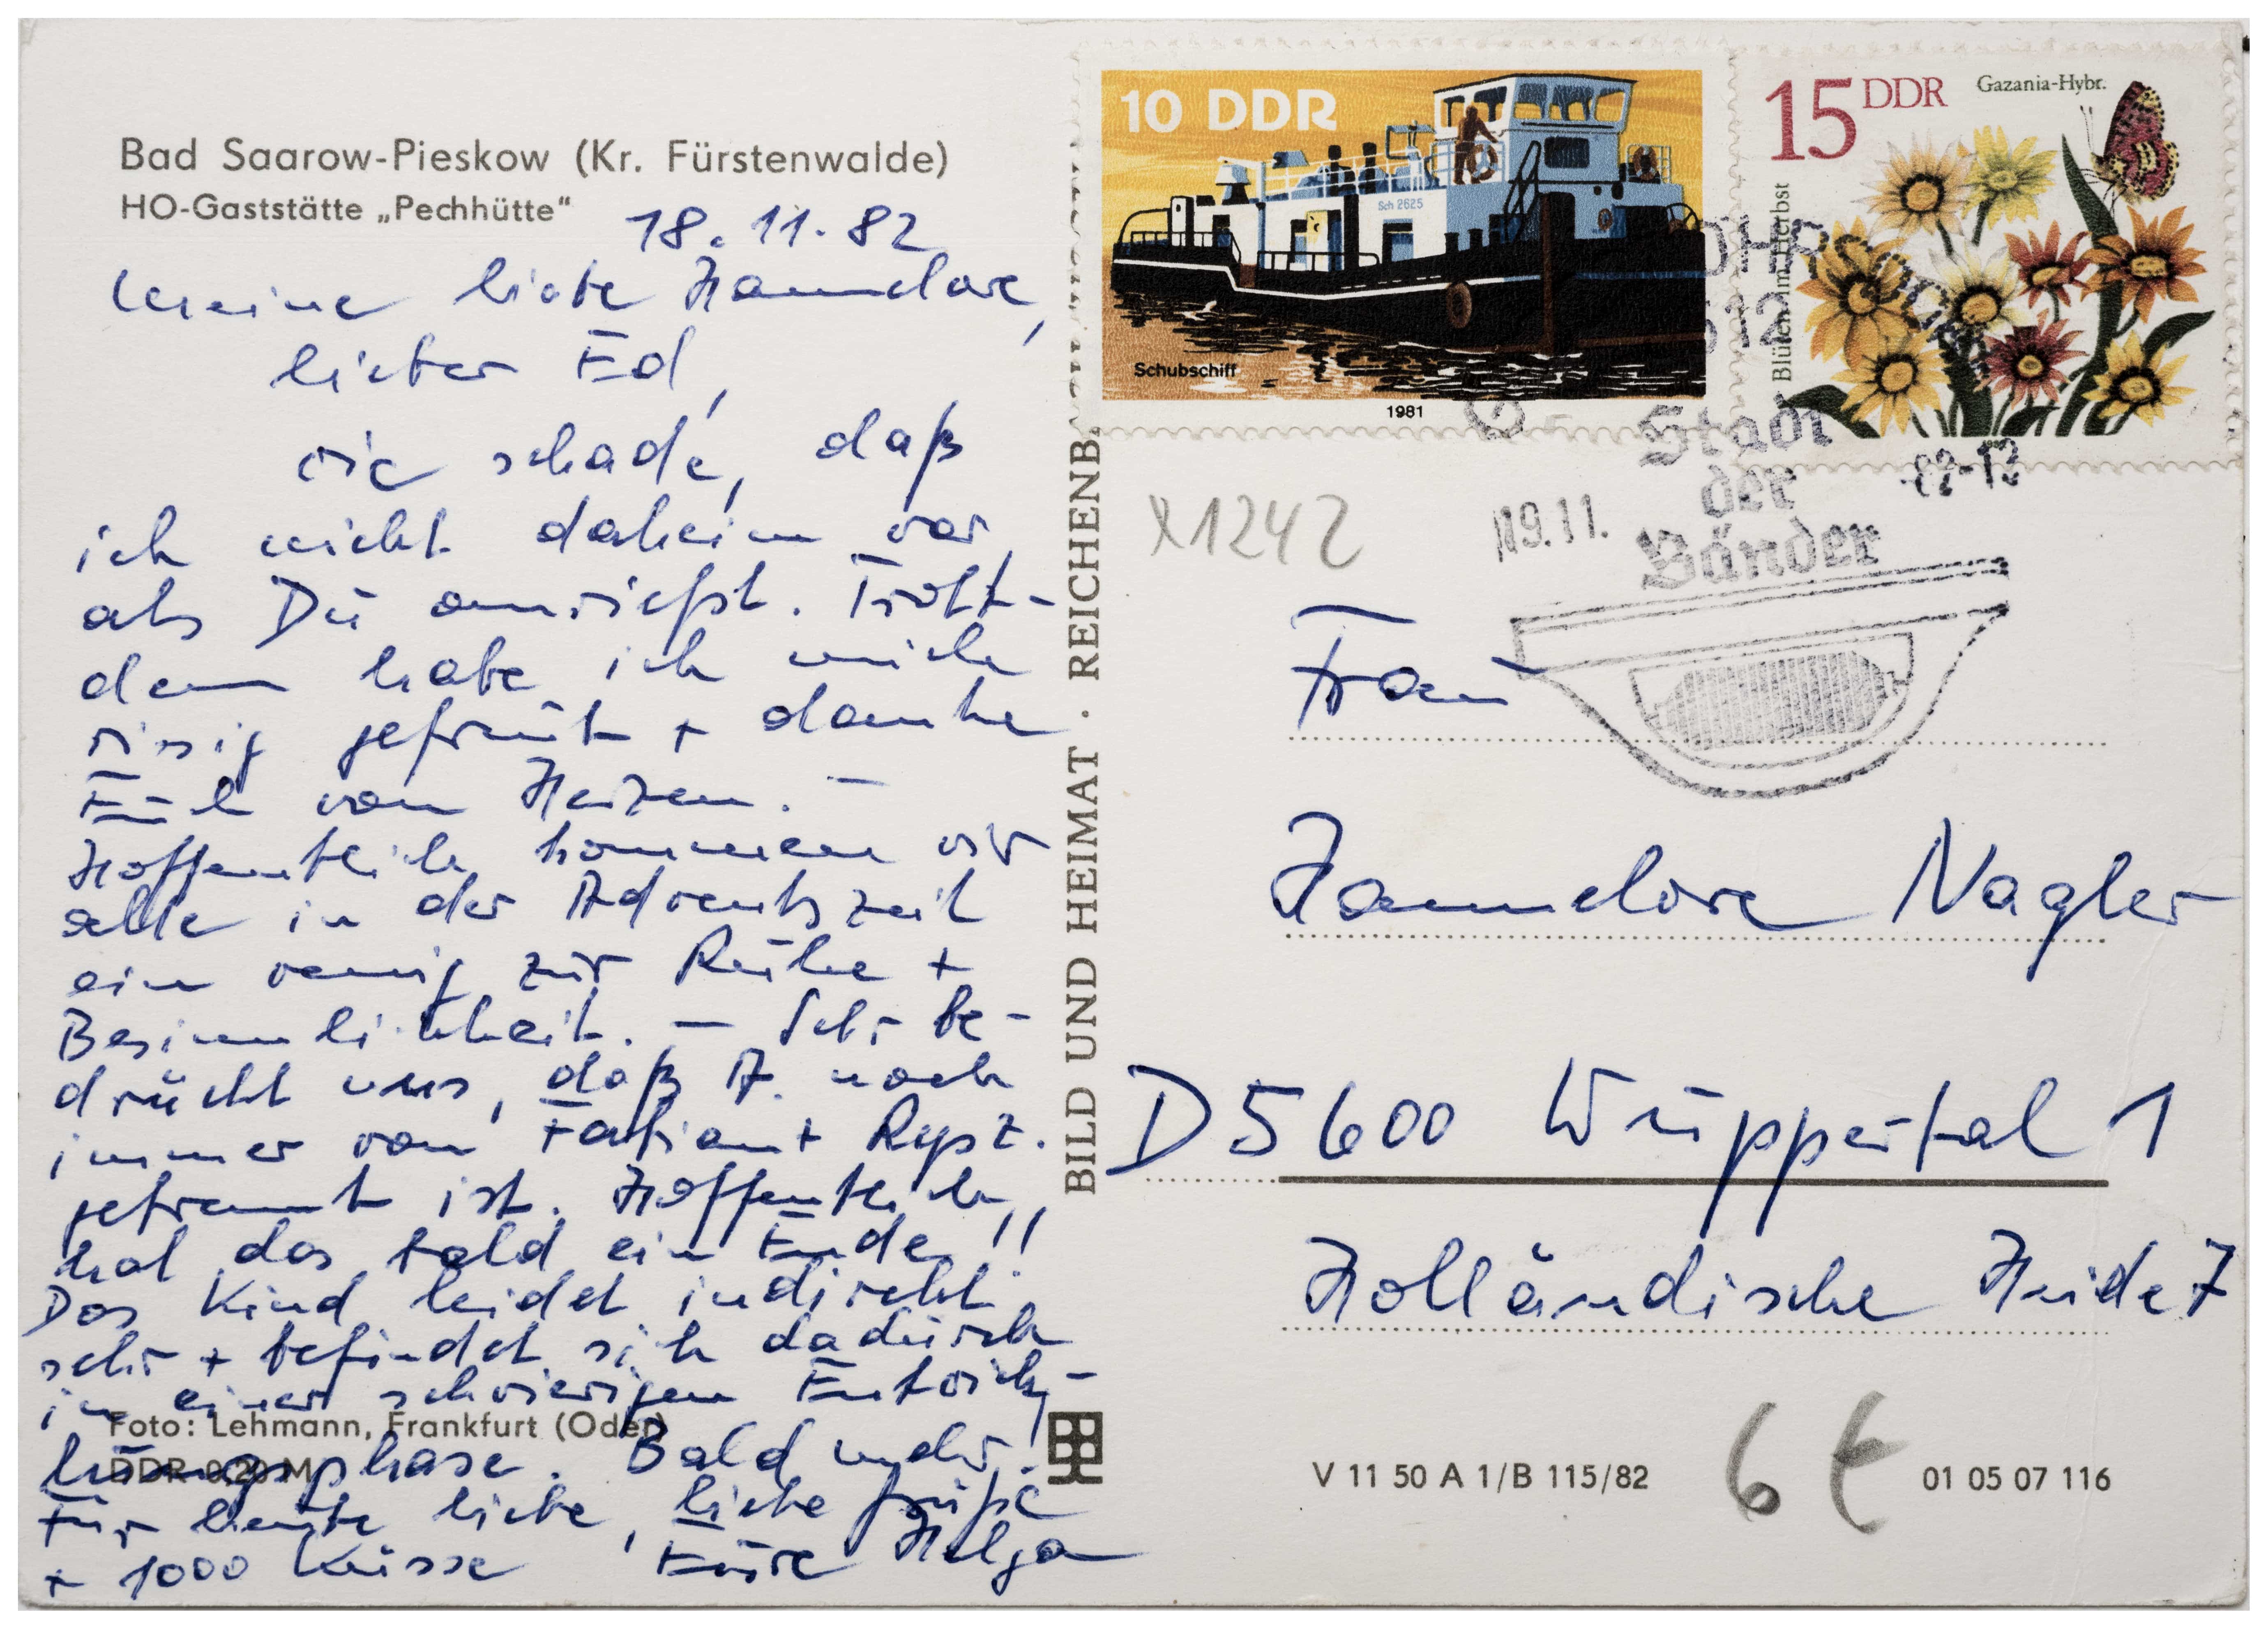 Bad Saarow-Pieskow (Kr. Fürstenwalde)
HO-Gaststätte „Pechhütte“
18.11.82
Meine liebe Hannelore,
lieber Ed,
wie schade, daß
ich nicht daheim war,
als Du anriefst. Trotz-
dem habe ich mich
riesig gefreut + danke
Euch von Herzen. –
Hoffentlich kommen wir
alle in der Adventszeit
ein wenig zur Ruhe +
Besinnlichkeit. – Sehr be-
drückt uns, daß A. noch
immer von Fabian +
getrennt ist. Hoffentlich
hat das bald ein Ende!!
Das Kind leidet indirekt
sehr + befindet sich dadurch
in einer schwierigen Entwick-
lungsphase. Bald mehr!
Für heute liebe, liebe Grüße
+ 1000 Küsse, Eure Helga
Foto: Lehmann, Frankfurt (Oder)
DDR 0,20 M
BILD UND HEIMAT · REICHENB.
10 DDR
Sch 2625
Schubschiff
1981
15 DDR
Gazania-Hybr.
Blüten im Herbst
Stadt
der
Bänder
19.11.
82-12
X1242
Frau
Hannelore Nagler
D 5600 Wuppertal 1
Holländische Heide 7
V 11 50 A 1/B 115/82
6 €
01 05 07 116